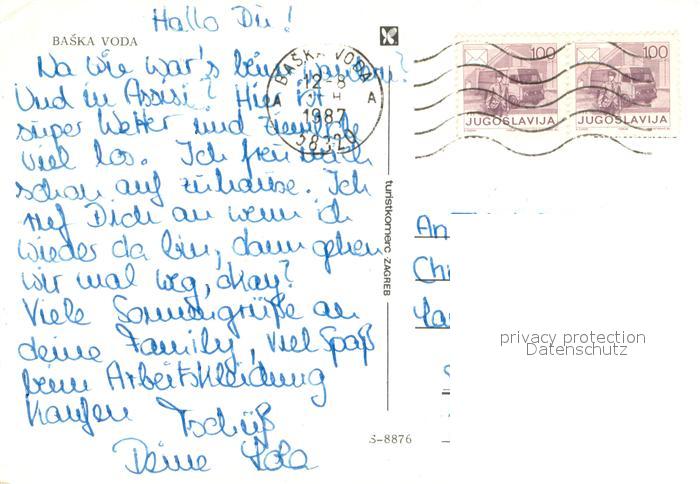 Hallo Du!
BAŠKA VODA
Na wie war's beim
Und in Assisi? Hier ist
super Wetter und ziemlich
viel los. Ich freu mich
schon auf zuhause. Ich
ruf Dich an wenn ich
wieder da bin, dann gehen
wir mal weg, okay?
Viele Sonnengrüße an
deine Family, viel Spaß
beim Arbeitskleidung
kaufen Tschüß
Deine Lola
BAŠKA VODA
12-8
A A
1987
58329
100 100
JUGOSLAVIJA JUGOSLAVIJA
turistkomerc - ZAGREB
An
Ch
privacy protection
Datenschutz
S-8876